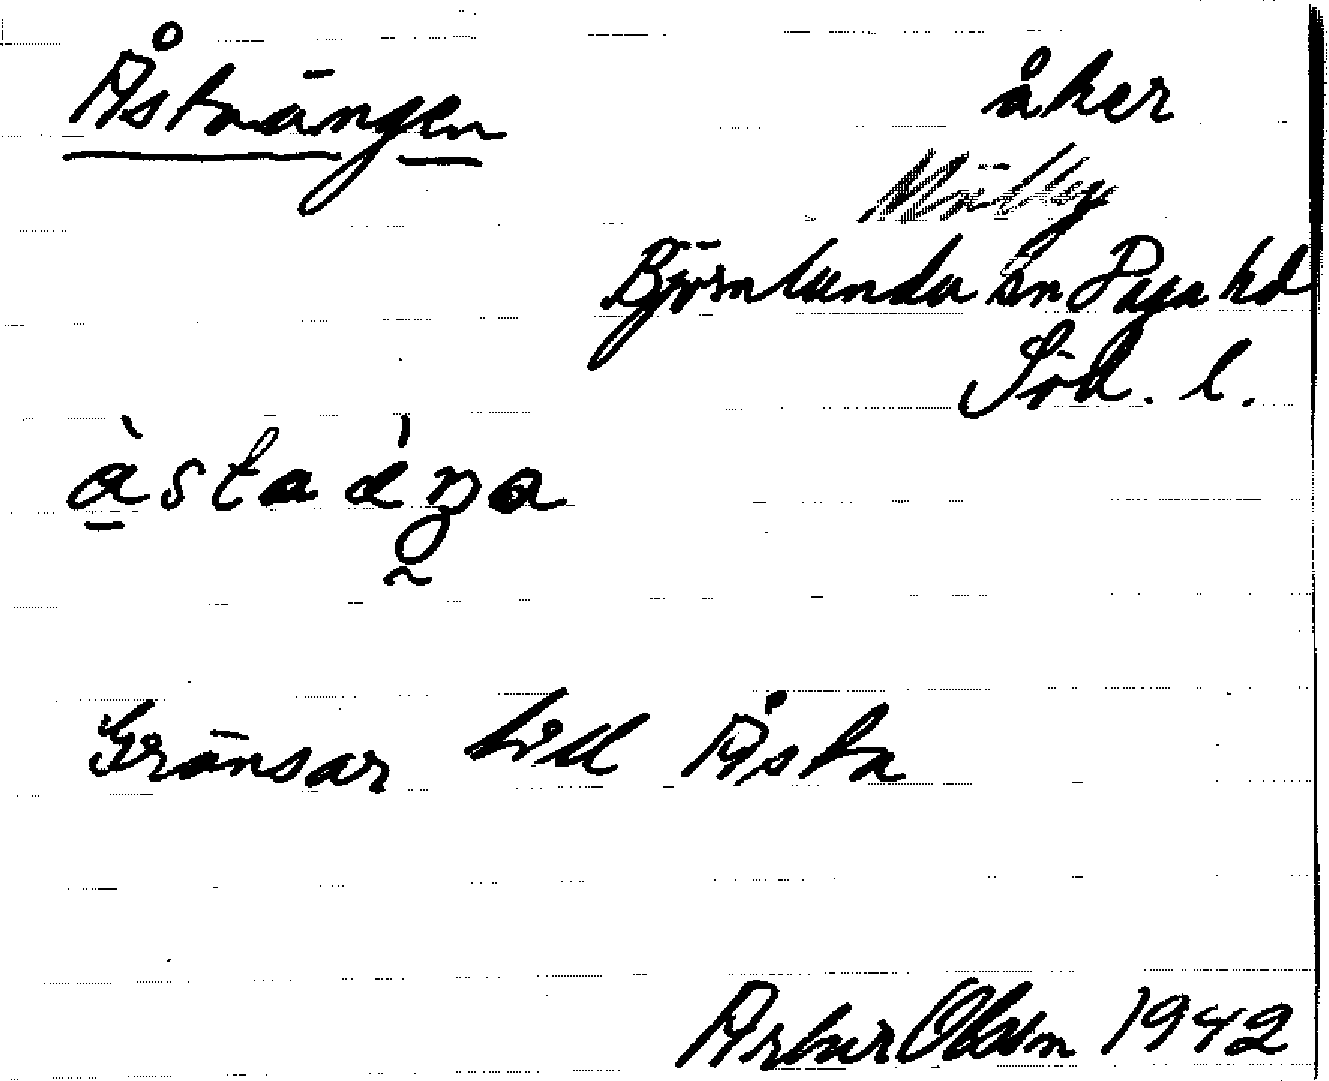 Åstaängen
åker
Björnlunda sn Daga hd
Söd. l.
àstaèŋa
Gränsar till Åsta
Artur Olsson 1942